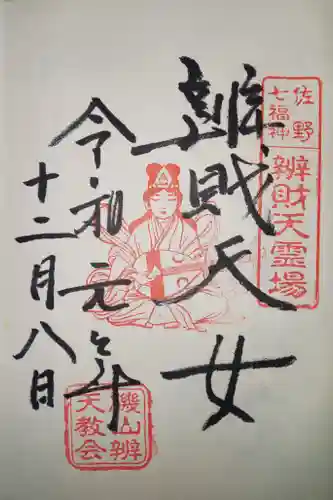 佐野
七福神
辨財天霊場
辨財天女
奉拝
令和元年
十二月八日
磯山辨
天教会